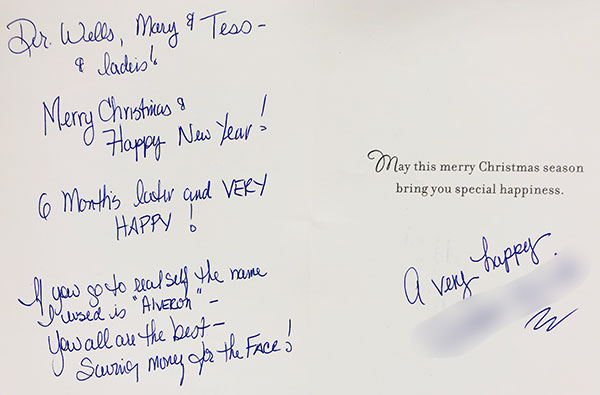 Dr. Wells, Mary & Tess –
& ladies!
Merry Christmas &
Happy New Year!
6 Months later and VERY
HAPPY!
If you go to realself the name
I used is "Alveron" –
You all are the best –
Saving money for the FACE!
May this merry Christmas season
bring you special happiness.
A very happy